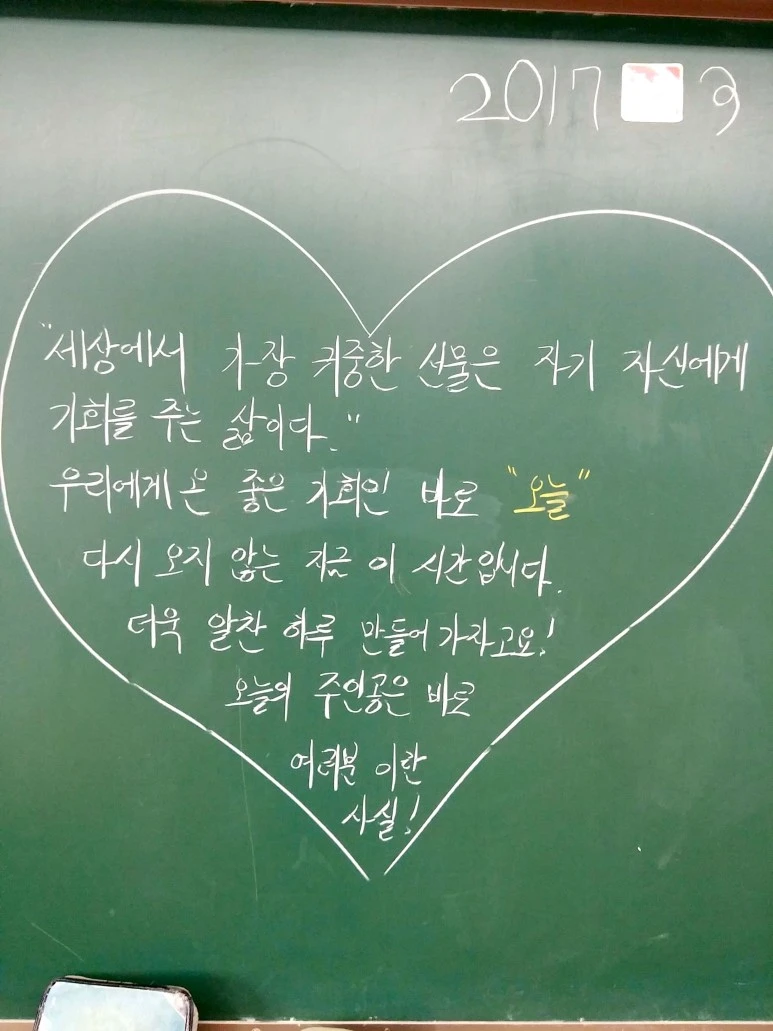 2017
"세상에서 가장 귀중한 선물은 자기 자신에게
기회를 주는 삶이다."
우리에게 온 좋은 기회인 바로 "오늘"
다시 오지 않는 지금 이 시간입니다.
더욱 알찬 하루 만들어 가자고요!
오늘의 주인공은 바로
여러분 이란
사실!